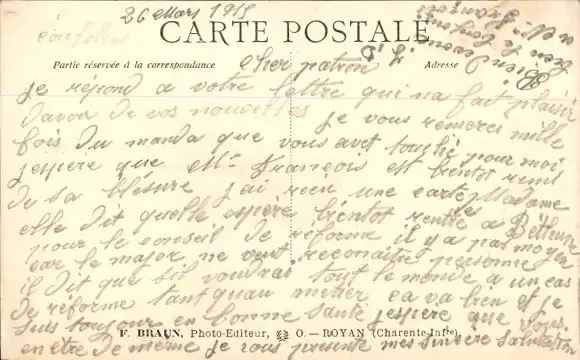 26 Mars 1915
Confolens
CARTE POSTALE
Partie réservée à la correspondance
Adresse
Cher patron
je répond a votre lettre qui na fait plaisir
davoir de vos nouvelles je vous remerci mille
fois du manda que vous avet touché pour moi
jespère que Mr François est bientot remi
de sa blésure j'ai recu une carte Madame
elle dit quelle espère bientot rentré a Béthune
pour le conseil de réforme il y a pas moyen
car le major ne veut reconaitre personne
il dit que sil voudrai tout le monde a un cas
de réforme tant quau métier ca va bien et je
suis toujour en bonne santé jespère que vous
F. BRAUN, Photo-Editeur, O. — ROYAN (Charente-Infre)
en etre de même je vous présente mes sincère
bien